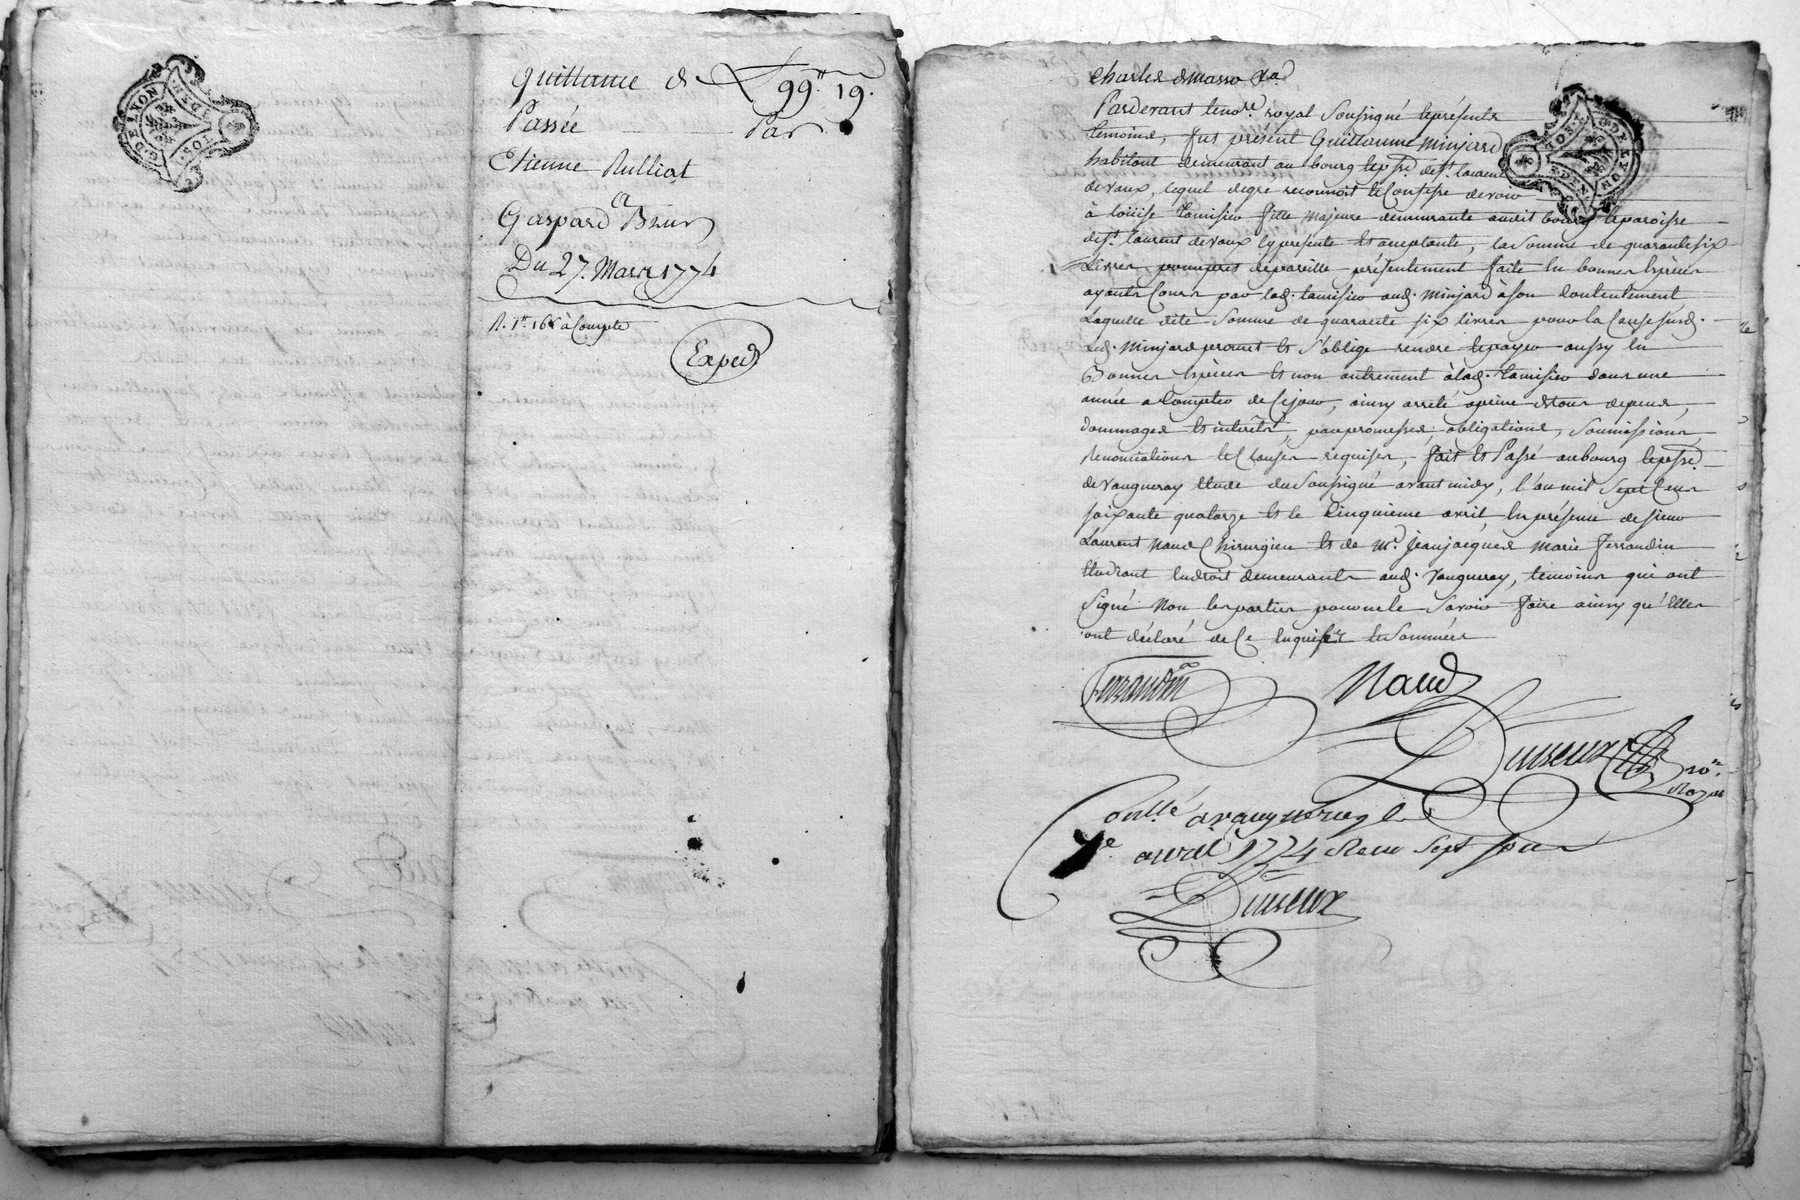 G. DE LYON
quittance de # 99tt 19s
Passée Par
Etienne Rulliat
a
Gaspard Brun
Du 27. Mars 1774
R. 1tt 16s à Compte
Exped
Pardevant le no.re royal Soussigné & présents
temoins, fut présent Guillaume Minjard
habitant demeurant au bourg & p.sse de S.t Laurent
de vaux, lequel de gré reconnoit & Confesse devoir
à loüise tamisier fille majeure demeurante audit bourg & paroisse
de S.t Laurent de vaux icy présente & acceptante, la Somme de quarante six
Livres, pour prêt de pareille présentement faite en bonnes Espèces
ayants Cours par lad. tamisier aud. Minjard à Son Contentement
Laquelle dite Somme de quarante six livres pour la Cause susd.
Led. Minjard promet & s'oblige rendre & payer aussy en
Bonnes Espèces & non autrement à lad. tamisier dans une
année a Compter de Ce jour, ainsy arrêté à peine de tous depens,
dommages & interêts, par promesses, obligations, Soumissions,
Renonciations & Clauses requises, fait & Passé au bourg & p.sse
de Vaugneray Etude du Soussigné avant midy, l'an mil Sept Cent
soixante quatorze & le Cinquieme avril En présence de Sieur
Laurent Naud Chirurgien & de Mr. Jean jacques Marie ferrandin
Etudiant En droit demeurants aud. Vaugneray, temoins qui ont
Signé Non les parties pour ne le Savoir faire ainsy qu'Elles
ont déclaré de Ce Enquises & Sommées
ferrandin
Naud
Duseux
no.re
Royal
Con.llé a vaugneray le
7e avril 1774 Reçu Sept Sous
Duseux